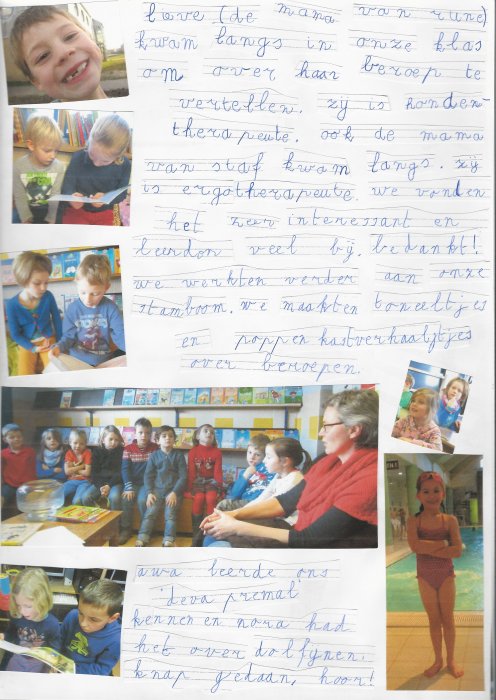 love (de mama van rune)
kwam langs in onze klas
om over haar beroep te
vertellen. zij is honden-
therapeute. ook de mama
van staf kwam langs. zij
is ergotherapeute. we vonden
het zeer interessant en
leerdon veel bij. bedankt!
we werkten verder aan onze
stamboom. we maakten toneeltjes
en poppenkastverhaaltjes
over beroepen.
awa leerde ons
'deva premal'
kennen en nora had
het over dolfijnen.
knap gedaan, hoor!